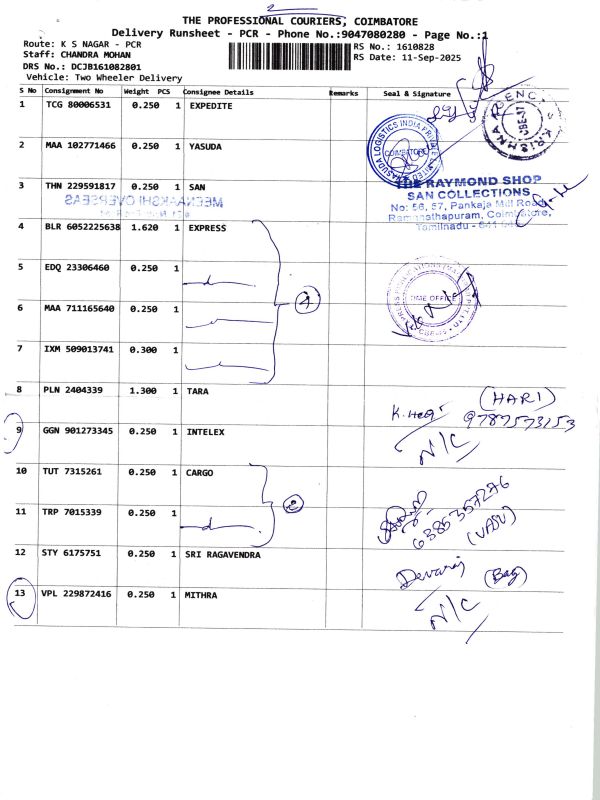 2
THE PROFESSIONAL COURIERS, COIMBATORE
Delivery Runsheet - PCR - Phone No.:9047080280 - Page No.:1
Route: K S NAGAR - PCR
RS No.: 1610828
Staff: CHANDRA MOHAN
RS Date: 11-Sep-2025
DRS No.: DCJB161082801
Vehicle: Two Wheeler Delivery
S No Consignment No Weight PCS Consignee Details Remarks Seal & Signature
1 TCG 80006531 0.250 1 EXPEDITE
2 MAA 102771466 0.250 1 YASUDA
YASUDA LOGISTICS INDIA PRIVATE LIMITED
COIMBATORE
3 THN 229591817 0.250 1 SAN
MEENAAKSHI OVERSEAS
THE RAYMOND SHOP
SAN COLLECTIONS
No: 56, 57, Pankaja Mill Road,
Ramanathapuram, Coimbatore,
Tamilnadu - 641 045
4 BLR 6052225638 1.620 1 EXPRESS
5 EDQ 23306460 0.250 1
4
TIME OFFICE
6 MAA 711165640 0.250 1
7 IXM 509013741 0.300 1
8 PLN 2404339 1.300 1 TARA
(HARI)
9787573153
9 GGN 901273345 0.250 1 INTELEX
N/C
10 TUT 7315261 0.250 1 CARGO
2
6385357276
(VASU)
11 TRP 7015339 0.250 1
12 STY 6175751 0.250 1 SRI RAGAVENDRA
Devaraj (Bag)
13 VPL 229872416 0.250 1 MITHRA
N/C